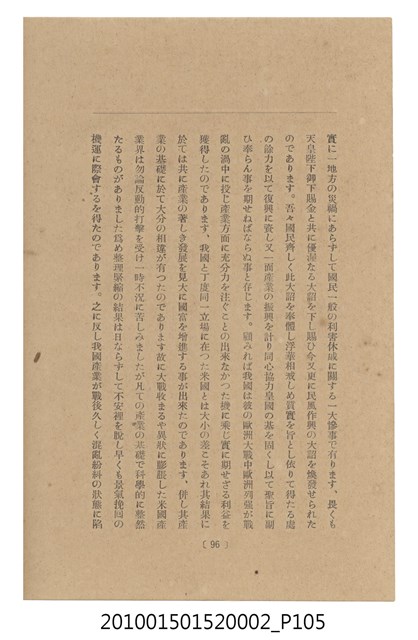 實に一地方の災禍にあらずして國民一般の利害休戚に關する一大慘事で有ります、畏くも
天皇陛下御下賜金と共に優渥なる大詔を下し賜ひ今又更に民風作興の大詔を煥發せられた
のであります。吾々國民齊しく此大詔を奉體し浮華相戒しめ質實を旨とし依りて得たる處
の餘力を以て復興に資し又一面産業の振興を計り同心協力皇國の基を固くし以て聖旨に副
ひ奉らん事を期せねばならぬ事と存じます。顧みれば我國は彼の歐洲大戰中歐洲列强が戰
亂の渦中に投じ産業方面に充分力を注ぐことの出來なかつた機に乘じ實に期せざる利益を
獲得したのであります、我國と丁度同一立場に在つた米國とは大小の差こそあれ其結果に
於ては共に産業の著しき發展を見大に國富を增進する事が出來たのであります、併し其産
業の基礎に於て大分の相違が有つたのであります故に大戰收まるや異狀に膨脹した米國産
業界は勿論反動的打擊を受け一時不況に苦しみましたが凡ての産業の基礎で科學的に整然
たるものがありました爲め整理緊縮の結果は日ならずして不安裡を脫し早くも景氣挽回の
機運に際會するを得たのであります。之に反し我國産業が戰後久しく混亂紛糾の狀態に陷
( 96 )
201001501520002_P105